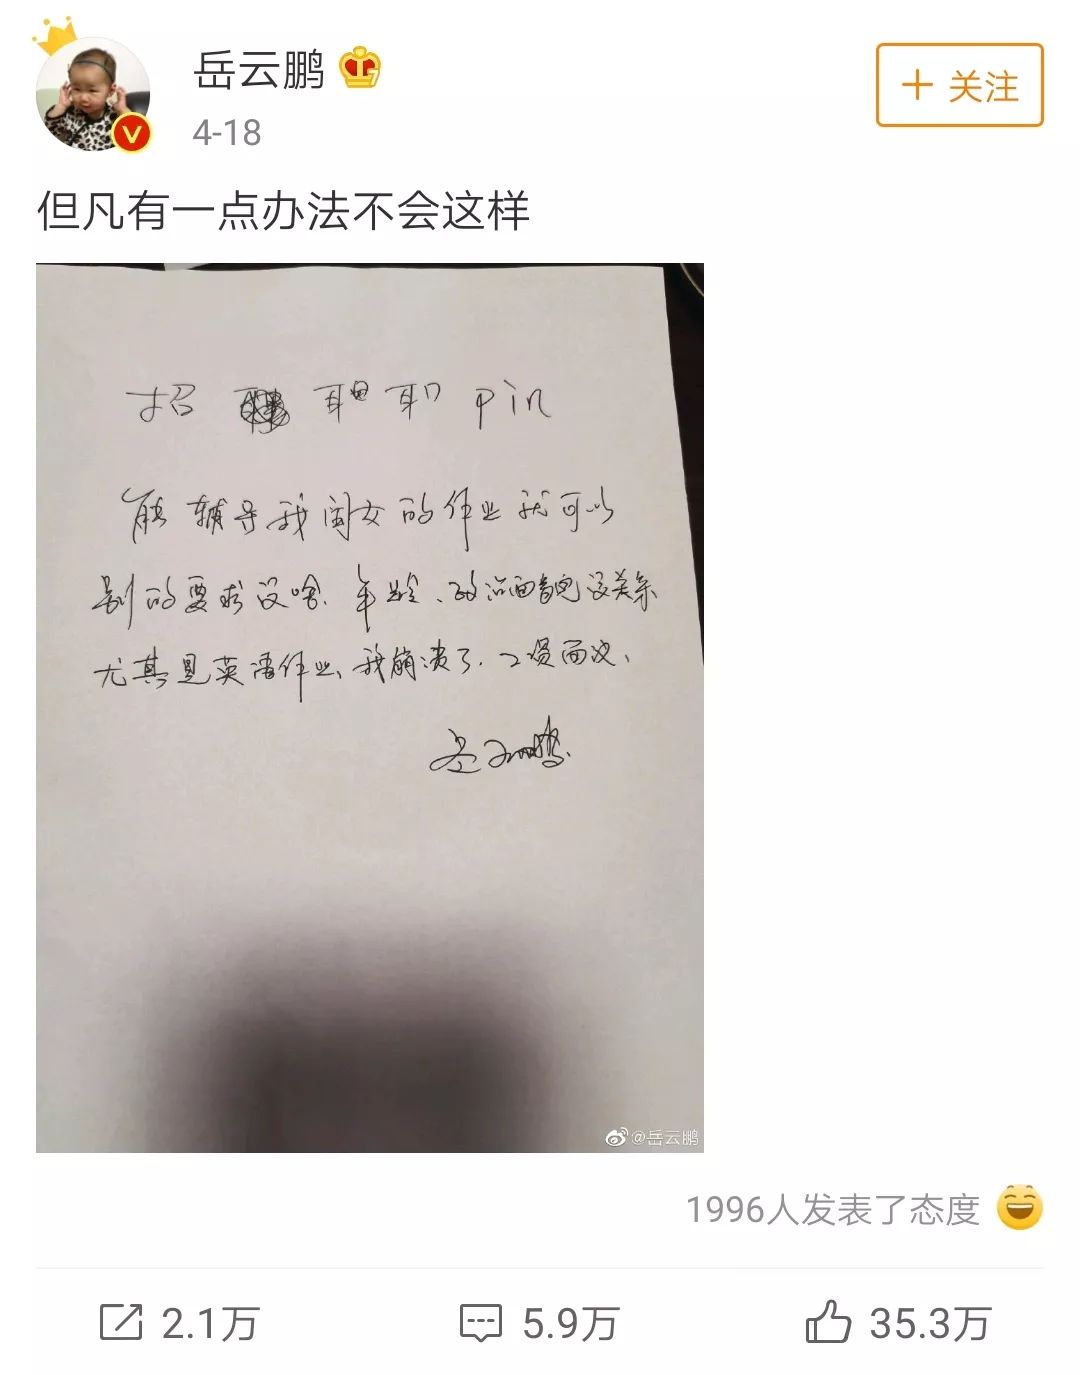 岳云鹏
7
4-18
V
+ 关注
但凡有一点办法不会这样
招 耶 职 pin
能辅导我闺女的作业就可以
别的要求没啥.年龄、政治面貌没关系
尤其是英语作业、我崩溃了.工资面议、
岳云鹏
@岳云鹏
1996人发表了态度
2.1万
5.9万
35.3万